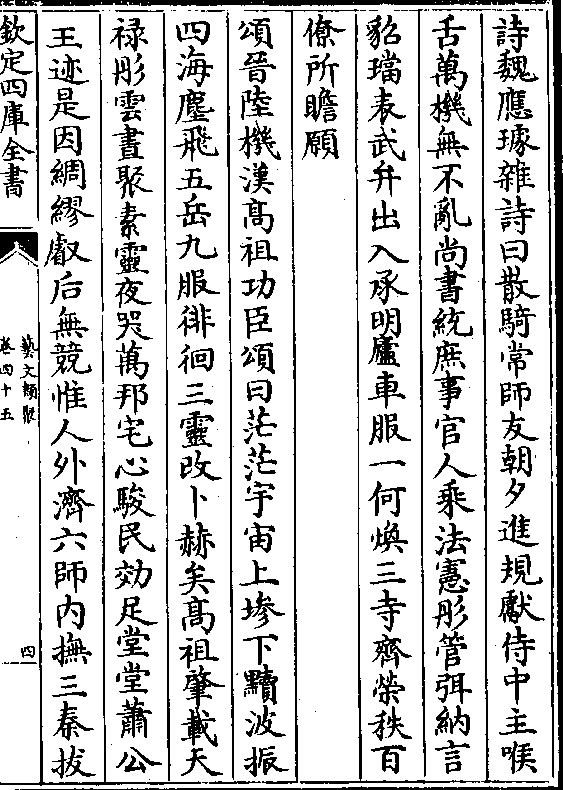 詩魏應璩雜詩曰散騎常師友朝夕進規獻侍中主喉
舌萬機無不亂尚書統庶事官人乘法憲彤管弭納言
貂璫表武弁出入承明廬車服一何煥三寺齊榮秩百
僚所瞻願
頌晉陸機漢高祖功臣頌曰茫茫宇宙上墋下黷波振
四海塵飛五岳九服徘徊三靈改卜赫矣髙祖肇載天
禄彤雲晝聚素靈夜哭萬邦宅心駿民効足堂堂蕭公
王迹是因綢繆叡后無競惟人外濟六師内撫三秦拔
欽定四庫全書
藝文類聚
卷四十五
四